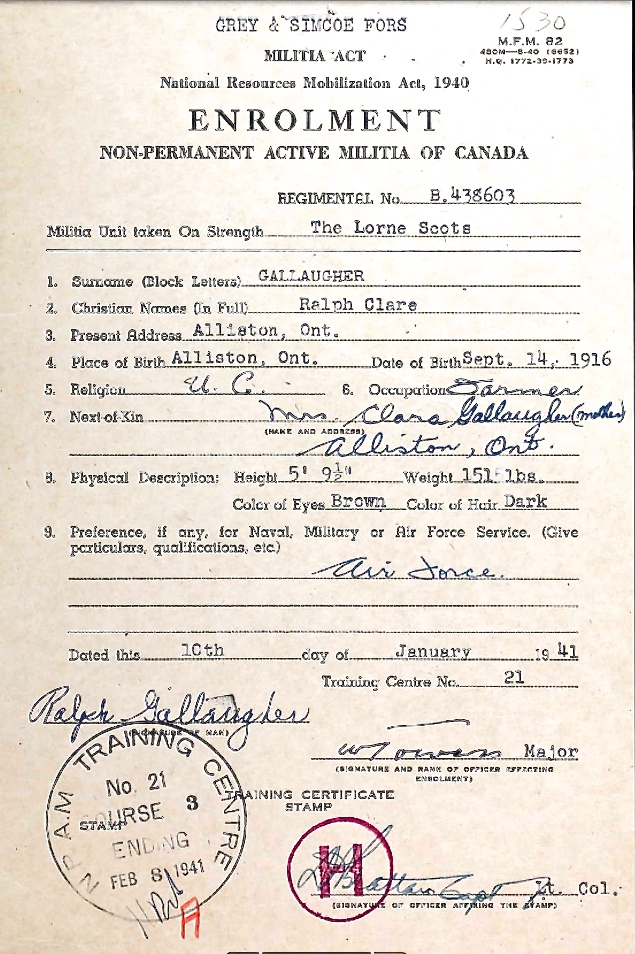 GREY & SIMCOE FORS
1530
M.F.M. 82
480M—8-40 (6652)
H.Q. 1772-39-1773
MILITIA ACT
National Resources Mobilization Act, 1940
ENROLMENT
NON-PERMANENT ACTIVE MILITIA OF CANADA
REGIMENTAL No. B.438603
Militia Unit taken On Strength The Lorne Scots
1. Surname (Block Letters) GALLAUGHER
2. Christian Names (In Full) Ralph Clare
3. Present Address Alliston, Ont.
4. Place of Birth Alliston, Ont. Date of Birth Sept. 14, 1916
5. Religion U. C. 6. Occupation Farmer
7. Next-of-Kin Mrs. Clara Gallaugher (mother)
(NAME AND ADDRESS)
Alliston, Ont.
8. Physical Description: Height 5' 9½" Weight 151 lbs.
Color of Eyes Brown Color of Hair Dark
9. Preference, if any, for Naval, Military or Air Force Service. (Give
particulars, qualifications, etc.)
Air Force.
Dated this 10th day of January 1941
Training Centre No. 21
Ralph Gallaugher
(SIGNATURE OF MAN)
Major
(SIGNATURE AND RANK OF OFFICER EFFECTING
ENROLMENT)
N.P.A.M TRAINING CENTRE
No. 21
COURSE 3
ENDING
FEB 8 1941
STAMP
TRAINING CERTIFICATE
STAMP
H
Capt Lt. Col.
(SIGNATURE OF OFFICER AFFIXING THE STAMP)
A